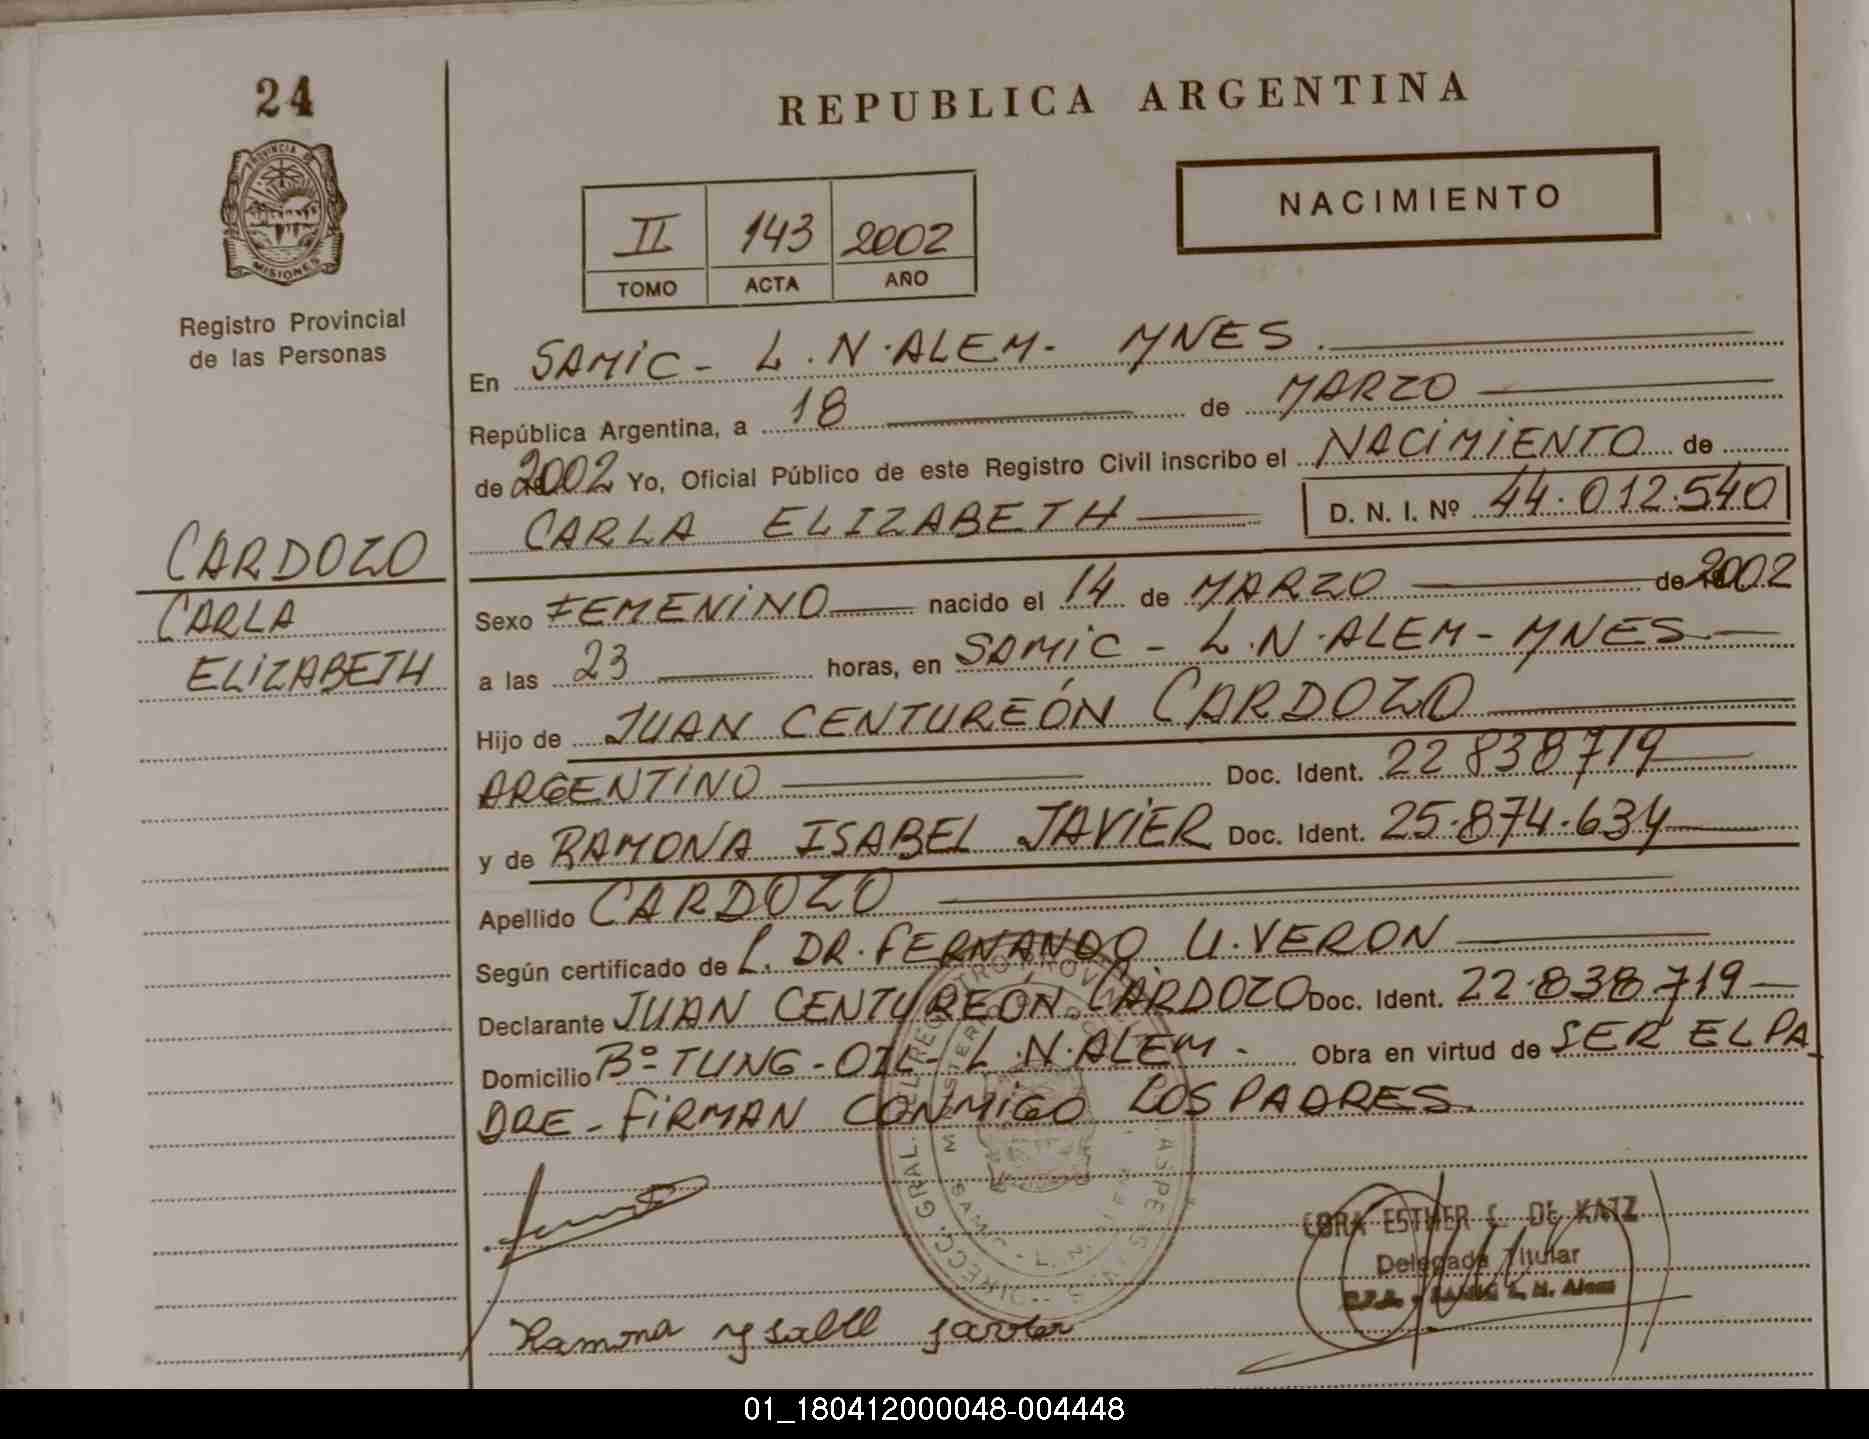 24
REPUBLICA ARGENTINA
PROVINCIA DE
MISIONES
Registro Provincial
de las Personas
II 143 2002
TOMO ACTA AÑO
NACIMIENTO
En SAMIC - L.N.ALEM - MNES.
República Argentina, a 18 de MARZO
de 2002 Yo, Oficial Público de este Registro Civil inscribo el NACIMIENTO de
CARLA ELIZABETH D. N. I. Nº 44.012.540
CARDOZO
CARLA
ELIZABETH
Sexo FEMENINO nacido el 14 de MARZO de 2002
a las 23 horas, en SAMIC - L.N.ALEM - MNES
Hijo de JUAN CENTUREÓN CARDOZO
ARGENTINO Doc. Ident. 22 838719
y de RAMONA ISABEL JAVIER Doc. Ident. 25.874.634
Apellido CARDOZO
Según certificado de P. DR. FERNANDO U. VERON
Declarante JUAN CENTUREÓN CARDOZO Doc. Ident. 22.838.719
Domicilio Bº TUNG - OIL - L.N.ALEM - Obra en virtud de SER EL PA
DRE - FIRMAN CONMIGO LOS PADRES.
ESTHER C. DE KATZ
Delegada Titular
L. N. Alem
Ramona Ysabel Javier
01_180412000048-004448